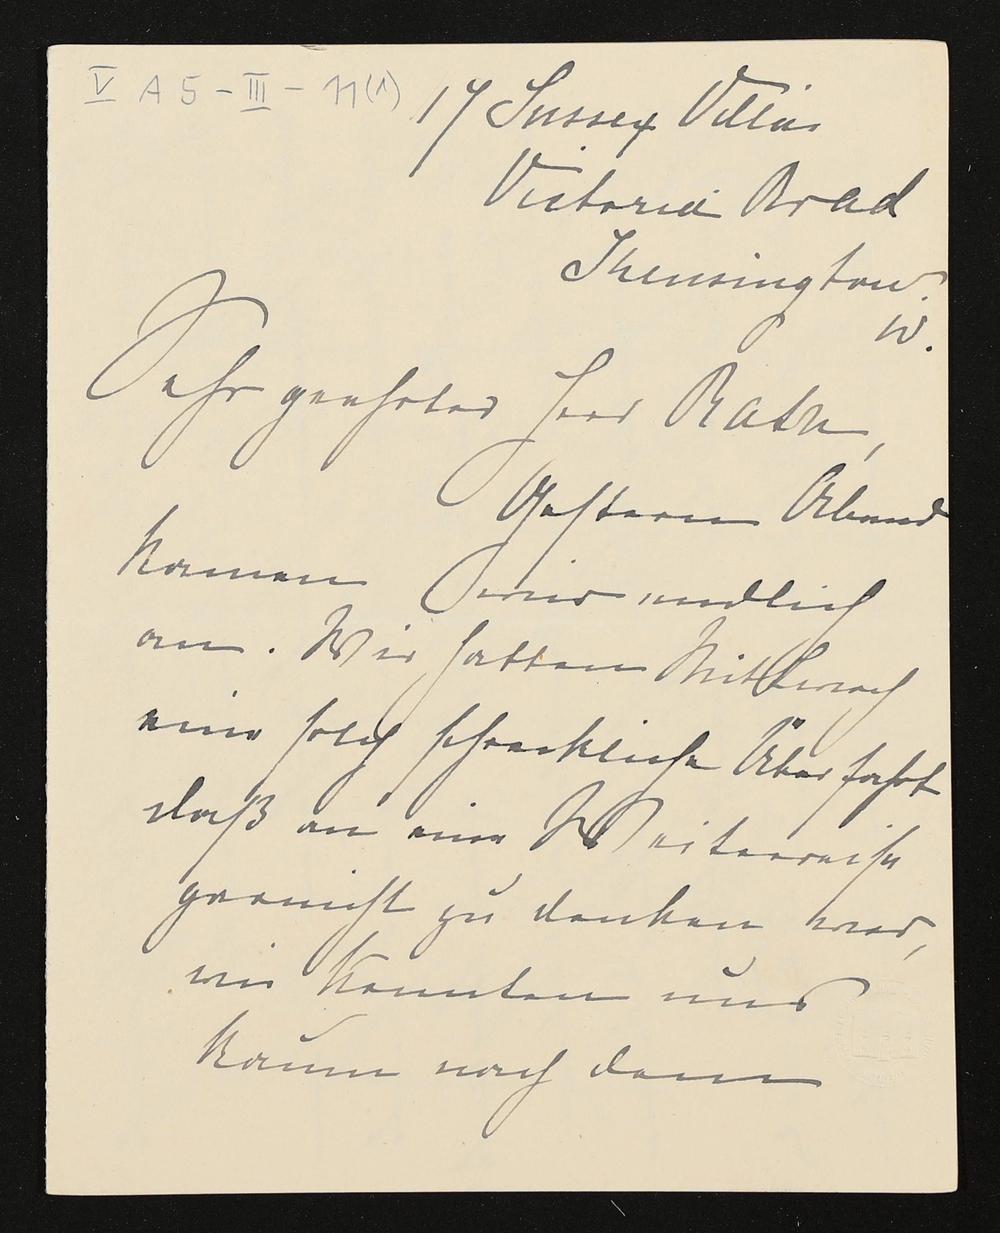 V A 5 - III - 11(1)
17 Sussex Villas
Victoria Road
Kensington.
W.
Sehr geehrter Herr Rath,
Gestern Abend
kamen wir endlich
an. Wir hatten Mittwoch
eine solch schreckliche Überfahrt
daß an eine Weiterreise
garnicht zu denken war,
wir konnten uns
kaum nach dem